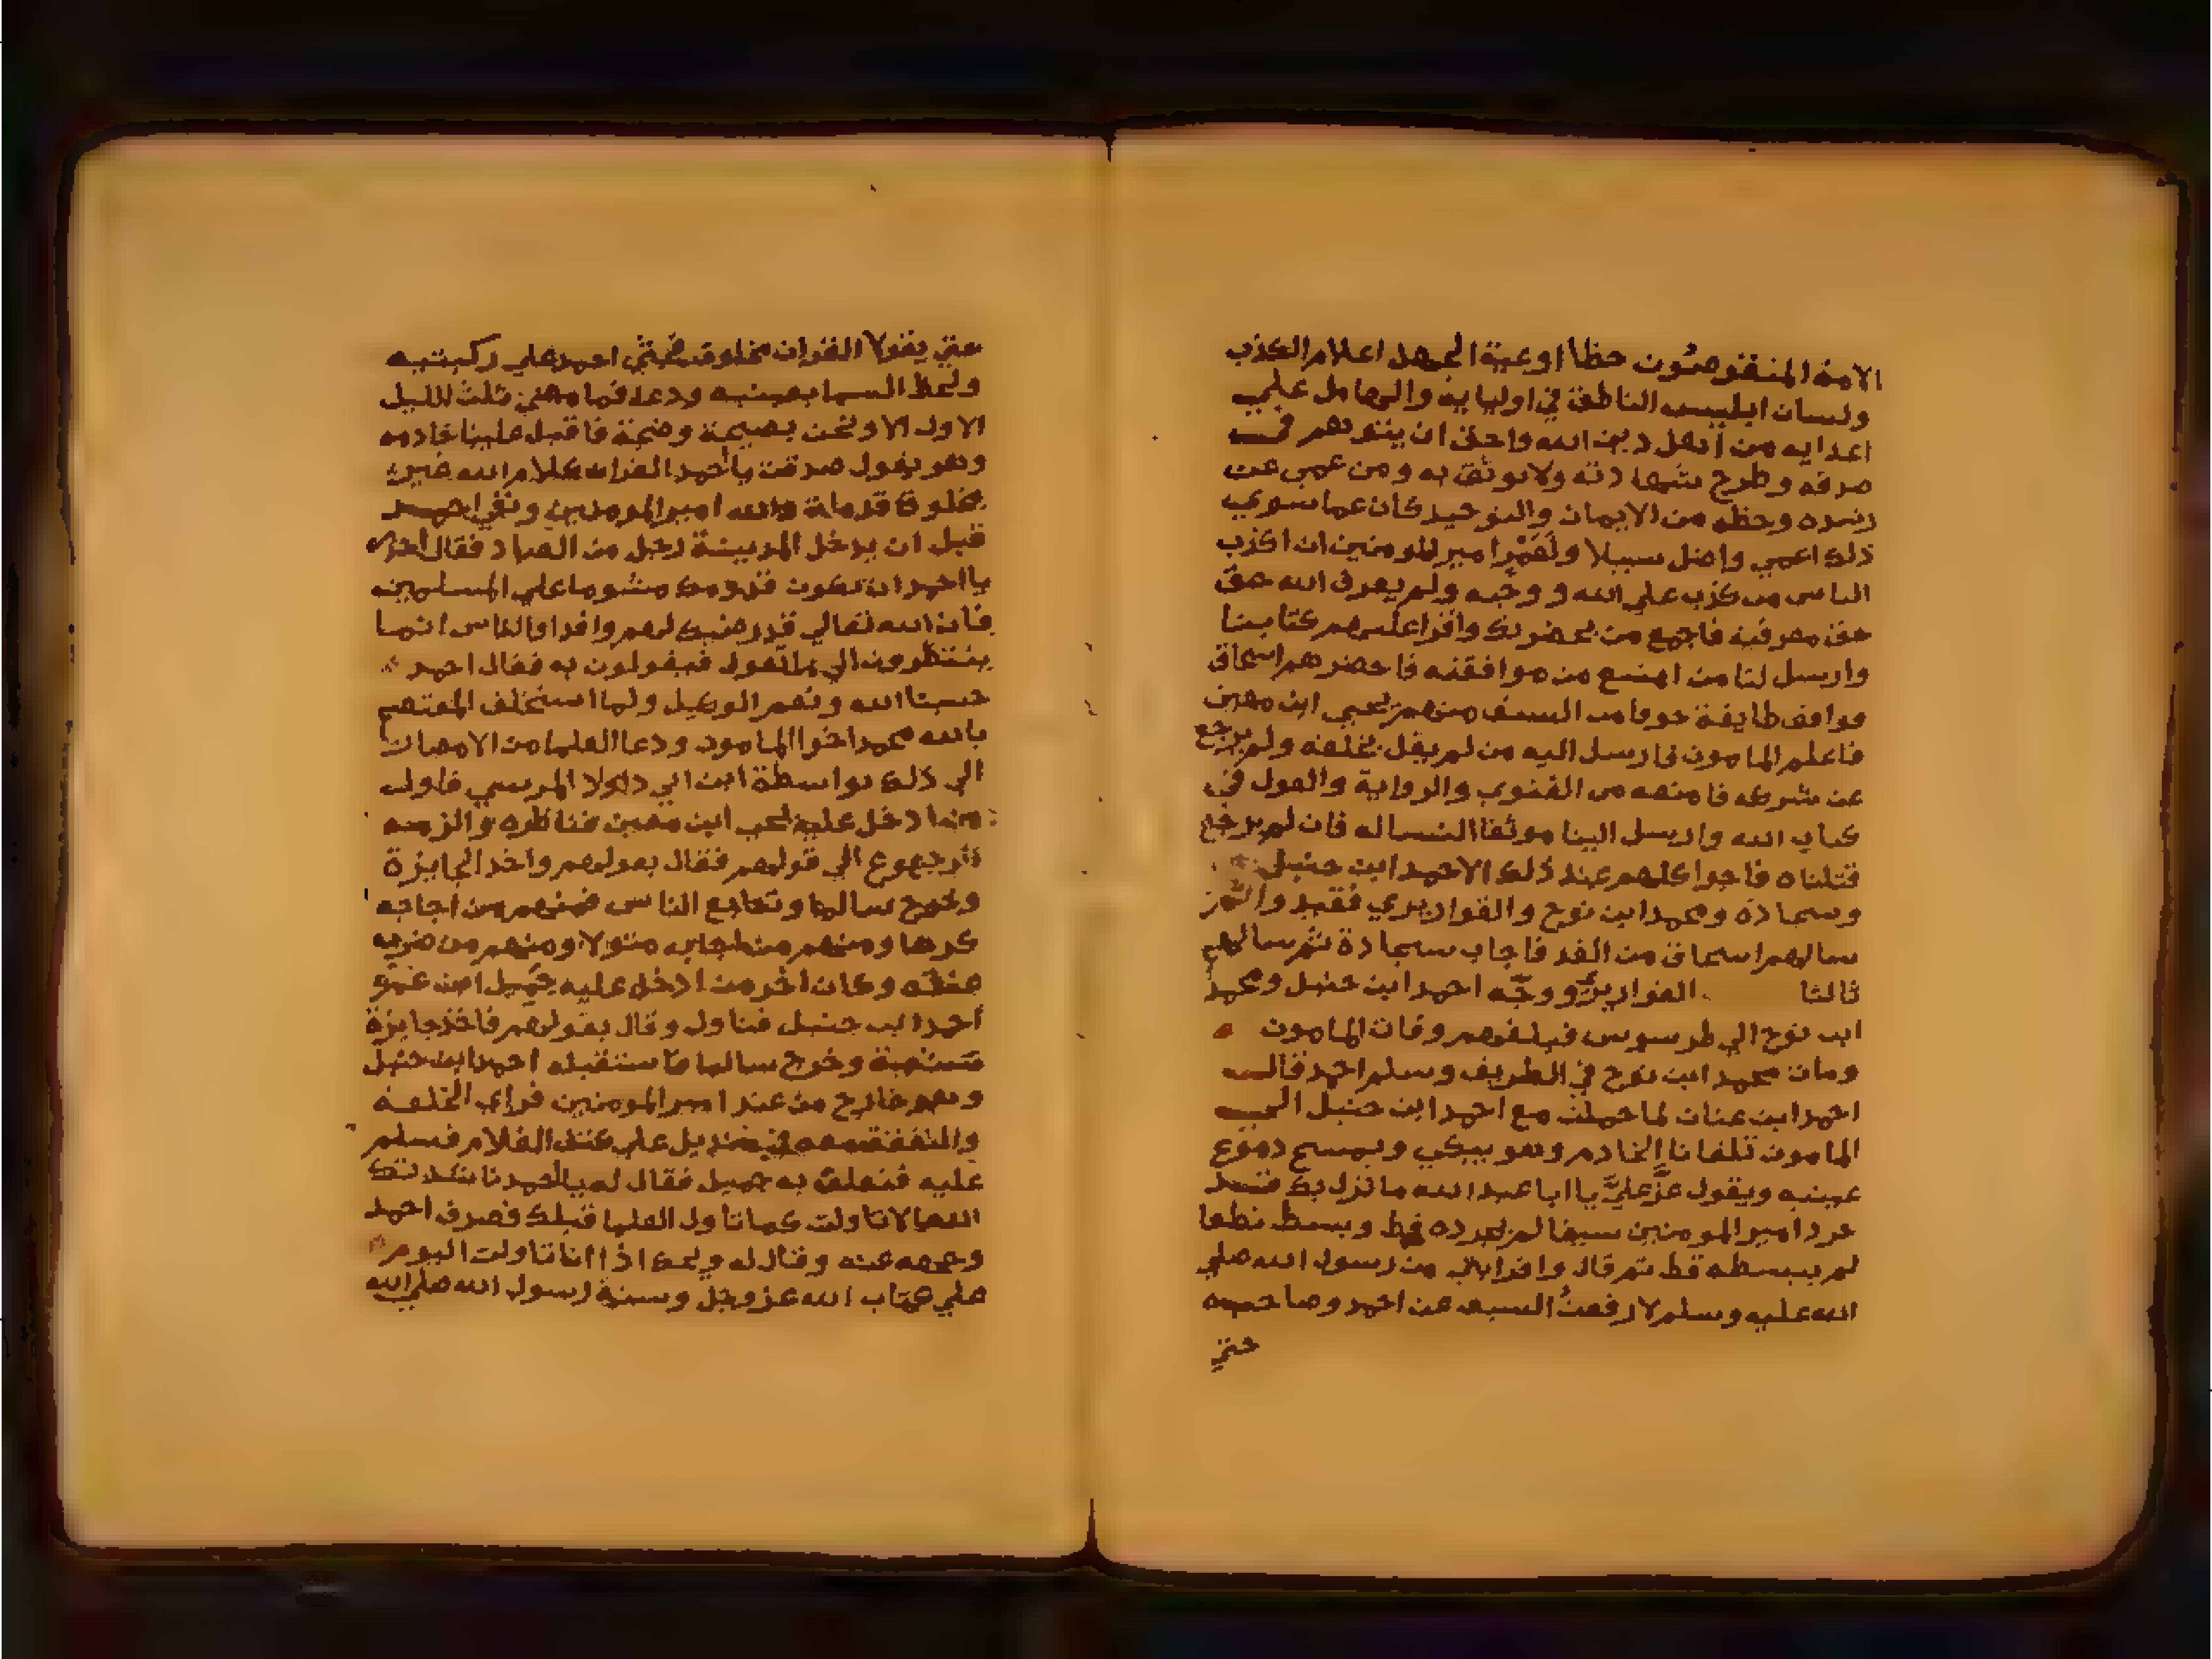 الامة المنقوصون حظا اوعية الجهل اعلام الكذب
ولسان ابليس الناطق في اوليايه والهامل علي
اعدايه من اهل دين الله واحق ان يتوهم في
صدقه وطرح شهادته ولا يوثق به ومن عمي عن
رشده وحظه من الايمان والتوحيد كان عما سوي
ذلك اعمي واضل سبيلا ولعمر امير المومنين ان اكذب
الناس من كذب علي الله ووحيه ولم يعرف الله حق
حق معرفته فاجمع من بحضرتك واقرا عليهم كتابنا
وارسل لنا من امتنع من موافقته فاحضرهم اسحاق
فوافق طايفة خوفا من السيف منهم يحيي ابن معين
فاعلم المامون فارسل اليه من لم يقل بخلقه ولم يرجع
عن شركه فامنعه من الفتوي والرواية والقول في
كتاب الله وارسل الينا موثقا لنساله فان لم يرجع
قتلناه فاجوا كلهم عند ذلك الا احمد ابن حنبل
وسجادة ومحمد ابن نوح والقواريري فقيد
سالهم اسحاق من الغد فاجاب سجادة ثم سالهم
ثالثا القواريري ووجه احمد ابن حنبل ومحمد
ابن نوح الي طرسوس فبلغهم وفات المامون
ومات محمد ابن نوح في الطريق وسلم احمد قال
احمد ابن عنان لما حملت مع احمد ابن حنبل الي
المامون تلقانا الخادم وهو يبكي ويمسح دموع
عينيه ويقول عز علي يا ابا عبد الله ما نزل بك قد
جرد امير المومنين سيفا لم يجرده قط وبسط نطعا
لم يبسطه قط ثم قال وقرابتي من رسول الله صلي
الله عليه وسلم لا رفعت السيف عن احمد وصاحبه
حتي
حتي يقولا القران مخلوق فجثي احمد علي ركبتيه
ولحظ السما بعينيه ودعا فما مضي ثلث الليل
الاول الا ونحن بصيحة وضجة فاقبل علينا خادمه
وهو يقول صدقت يا احمد القران كلام الله غير
مخلوق قد مات والله امير المومنين ولقي احمد
قبل ان يدخل المدينة رجل من العباد فقال احذر
يا احمد ان يكون قدومك مشوما علي المسلمين
فان الله تعالي قد رضيك لهم وافدا والناس انما
ينتظرون الي ما تقول فيقولون به فقال احمد
حسبنا الله ونعم الوكيل ولما استخلف المعتصم
بالله محمد اخوا المامون ودعا العلما من الامصار
الي ذلك بواسطة ابن ابي داود لا المريسي فاول
من ادخل عليه يحيي ابن معين فناظره والزمه
الرجوع الي قولهم فقال بقولهم واخذ الجايزة
وخرج سالما وتتابع الناس فمنهم من اجابه
كرها ومنهم من اجابه متولا ومنهم من ضرب
عنقه وكان اخر من ادخل عليه جميل
احمد ابن حنبل فتاول وقال بقولهم فاخذ جايزة
سنية وخرج سالما فاستقبله احمد ابن حنبل
وهو خارج من عند امير المومنين فراي الخلعة
والنفقة معه في منديل علي كتف الغلام فسلم
عليه فتعلق به جميل فقال له يا احمد ناشدتك
الله الا تاولت كما تاول العلما قبلك فصرف احمد
وجهه عنه وقال له ويحك اذا انا تاولت اليوم
علي كتاب الله عز وجل وسنة رسول الله صلي الله